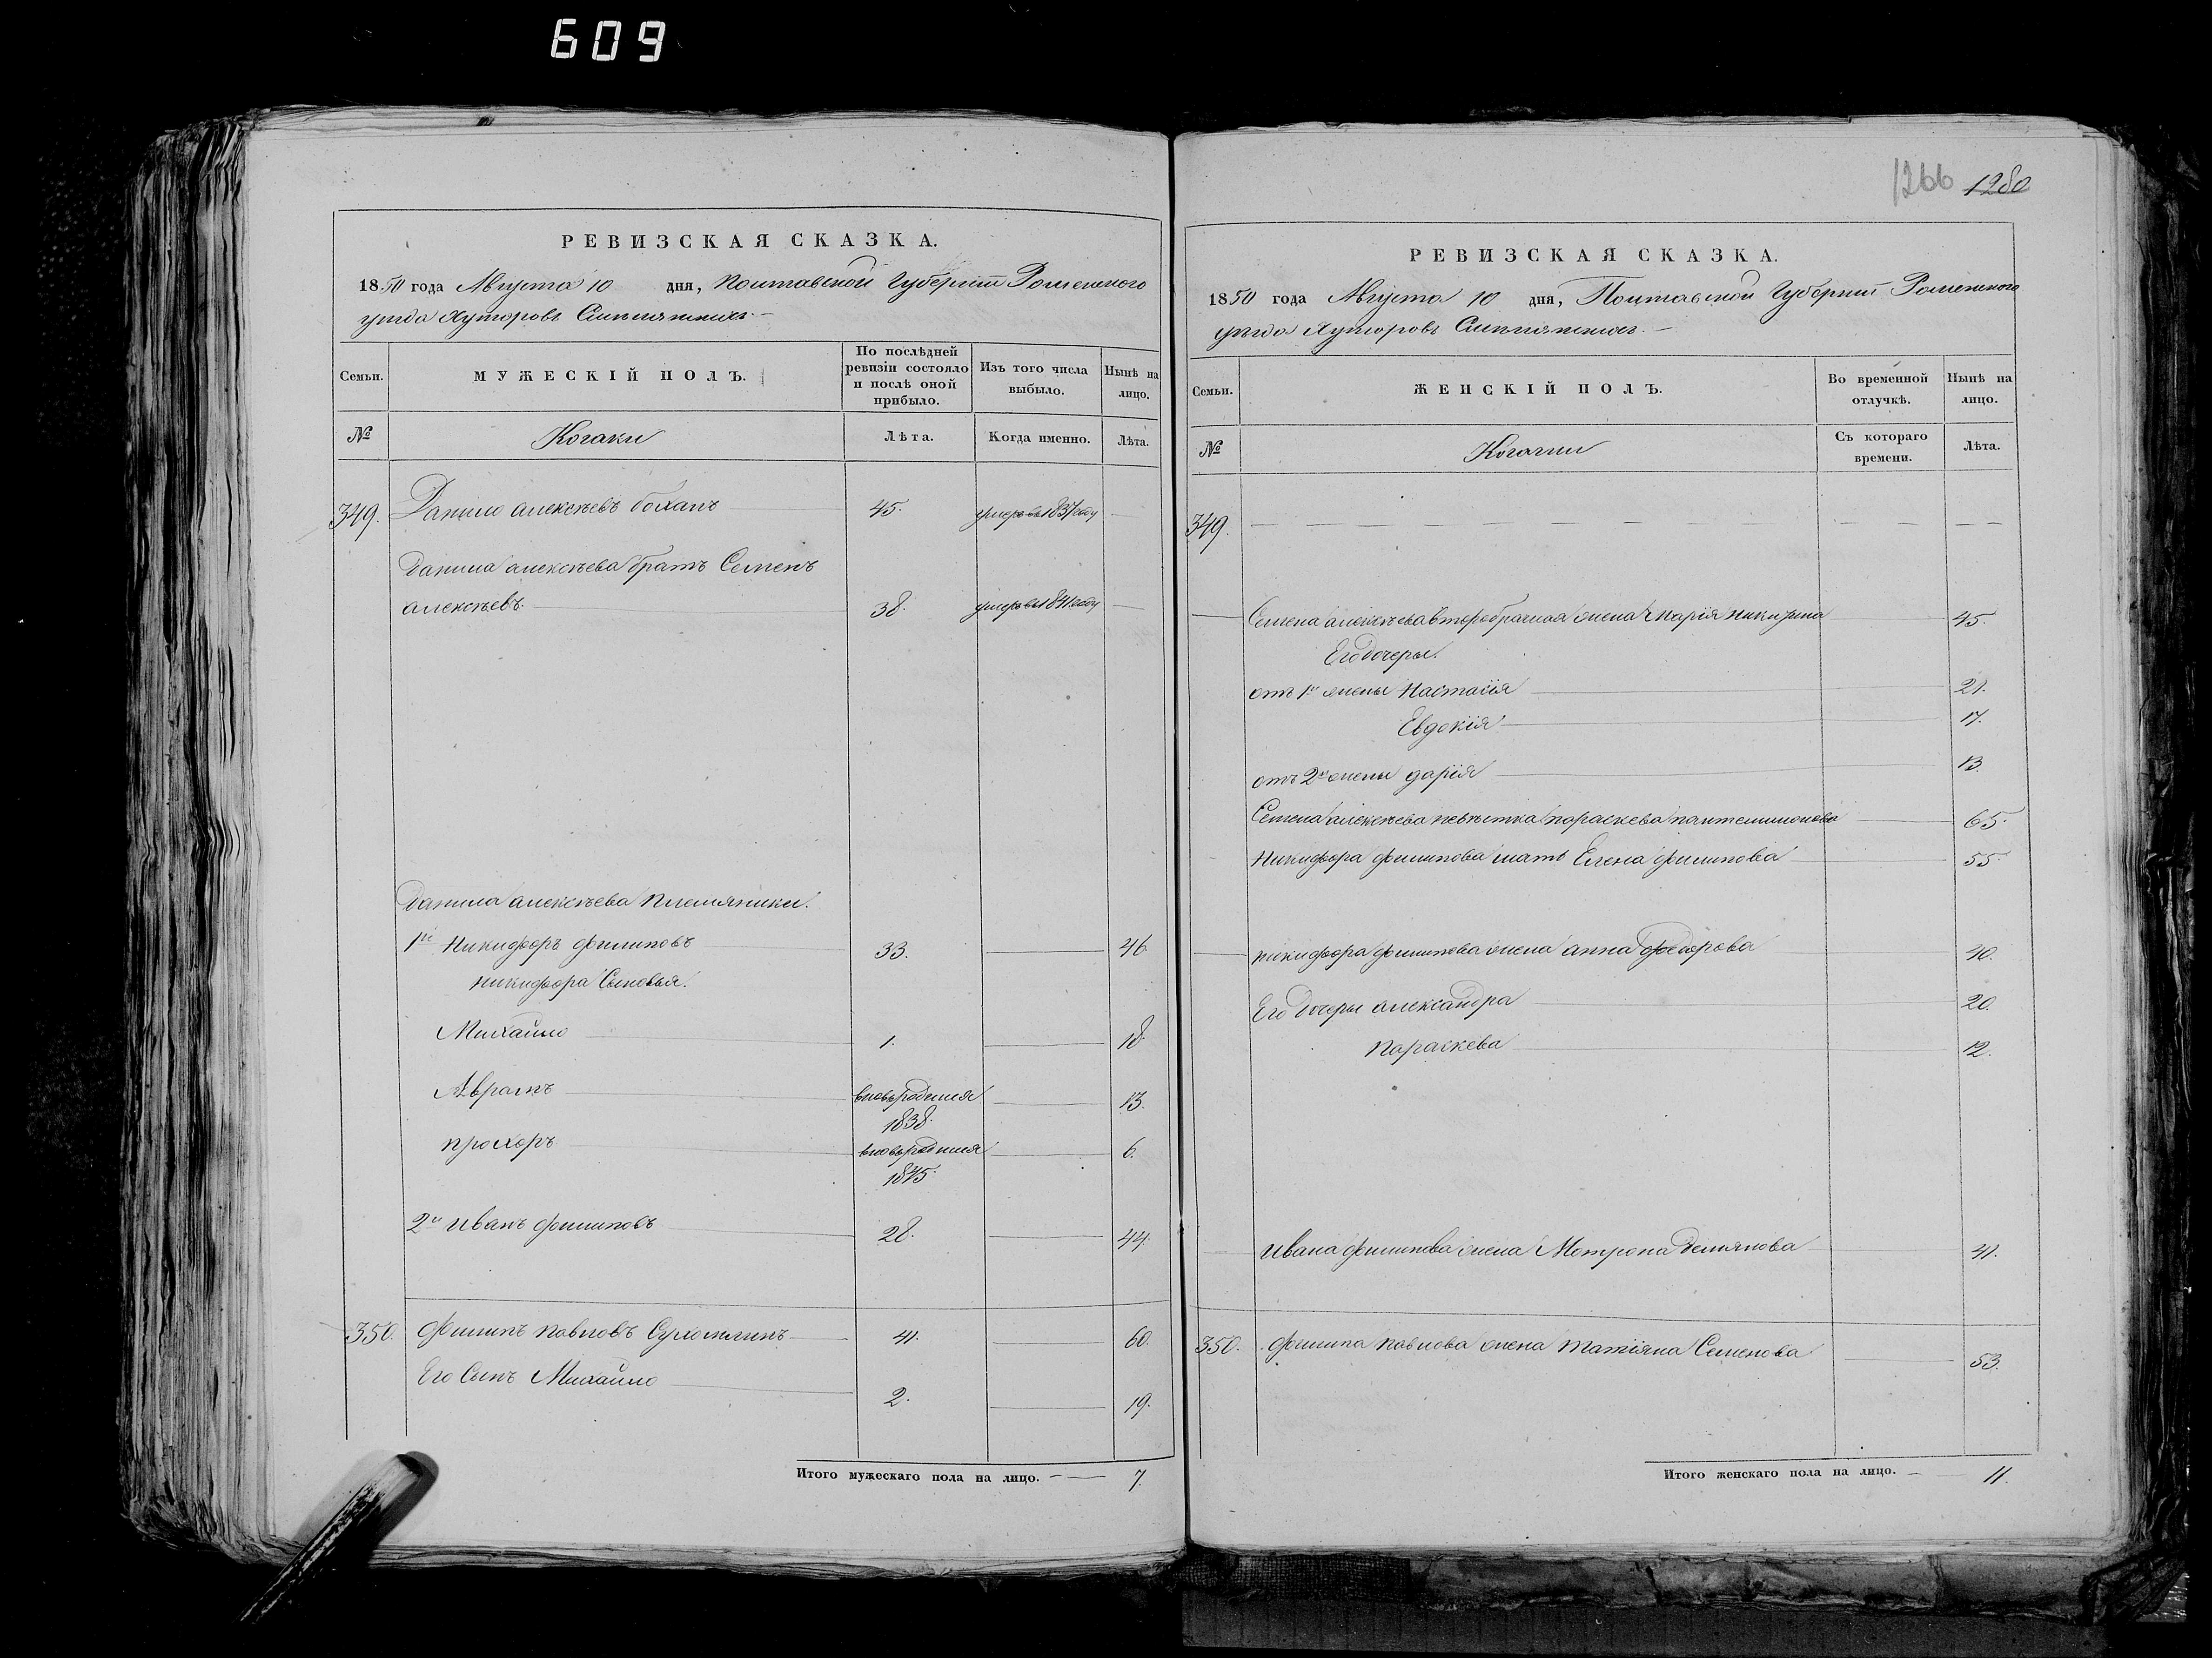 609
1266 1280
РЕВИЗСКАЯ СКАЗКА.
1850 года Августа 10 дня, Полтавской Губерніи Роменского
уезда Хуторовъ
Семьи.
МУЖЕСКІЙ ПОЛЪ.
По послѣдней ревизіи состояло и послѣ оной прибыло.
Изъ того числа выбыло.
Нынѣ на лицо.
№
Козаки
Лѣта.
Когда именно.
Лѣта.
349. Данило алексѣевъ 45. умеръ въ 1837 году
Данила алексѣева братъ Семенъ
алексѣевъ. 38. умеръ въ 1841 году
Данила алексѣева племяники.
1й Никифоръ филиповъ 33. 46
никифора Сыновья.
Михайло 1. 18.
Аврамъ вновьродился 13.
1838.
прохоръ вновьродился 6.
1845.
2й иванъ филиповъ 28. 44.
350. филипъ павловъ Сухомлинъ 41. 60.
Его Сынъ Михайло 2. 19.
Итого мужескаго пола на лицо. 7.
РЕВИЗСКАЯ СКАЗКА.
1850 года Августа 10 дня, Полтавской Губерніи Роменского
уѣзда Хуторовъ
Семьи.
ЖЕНСКІЙ ПОЛЪ.
Во временной отлучкѣ.
Нынѣ на лицо.
№
Козачки
Съ котораго времени.
Лѣта.
349.
Семена алексѣева второбрачная жена Марія 45.
Его дочеры.
отъ 1й жены Настасія 21.
Евдокія 17.
отъ 2й жены дарія 13.
Семена алексѣева невѣстка параскева пантелимонова 65.
Никифора филипова мать Елена филипова 55.
никифора филипова жена анна федорова 40.
Его дочеры александра 20.
параскева 12.
ивана филипова жена Мотрона демянова 41.
350. филипа павлова жена татіяна Семенова 53.
Итого женскаго пола на лицо. 11.